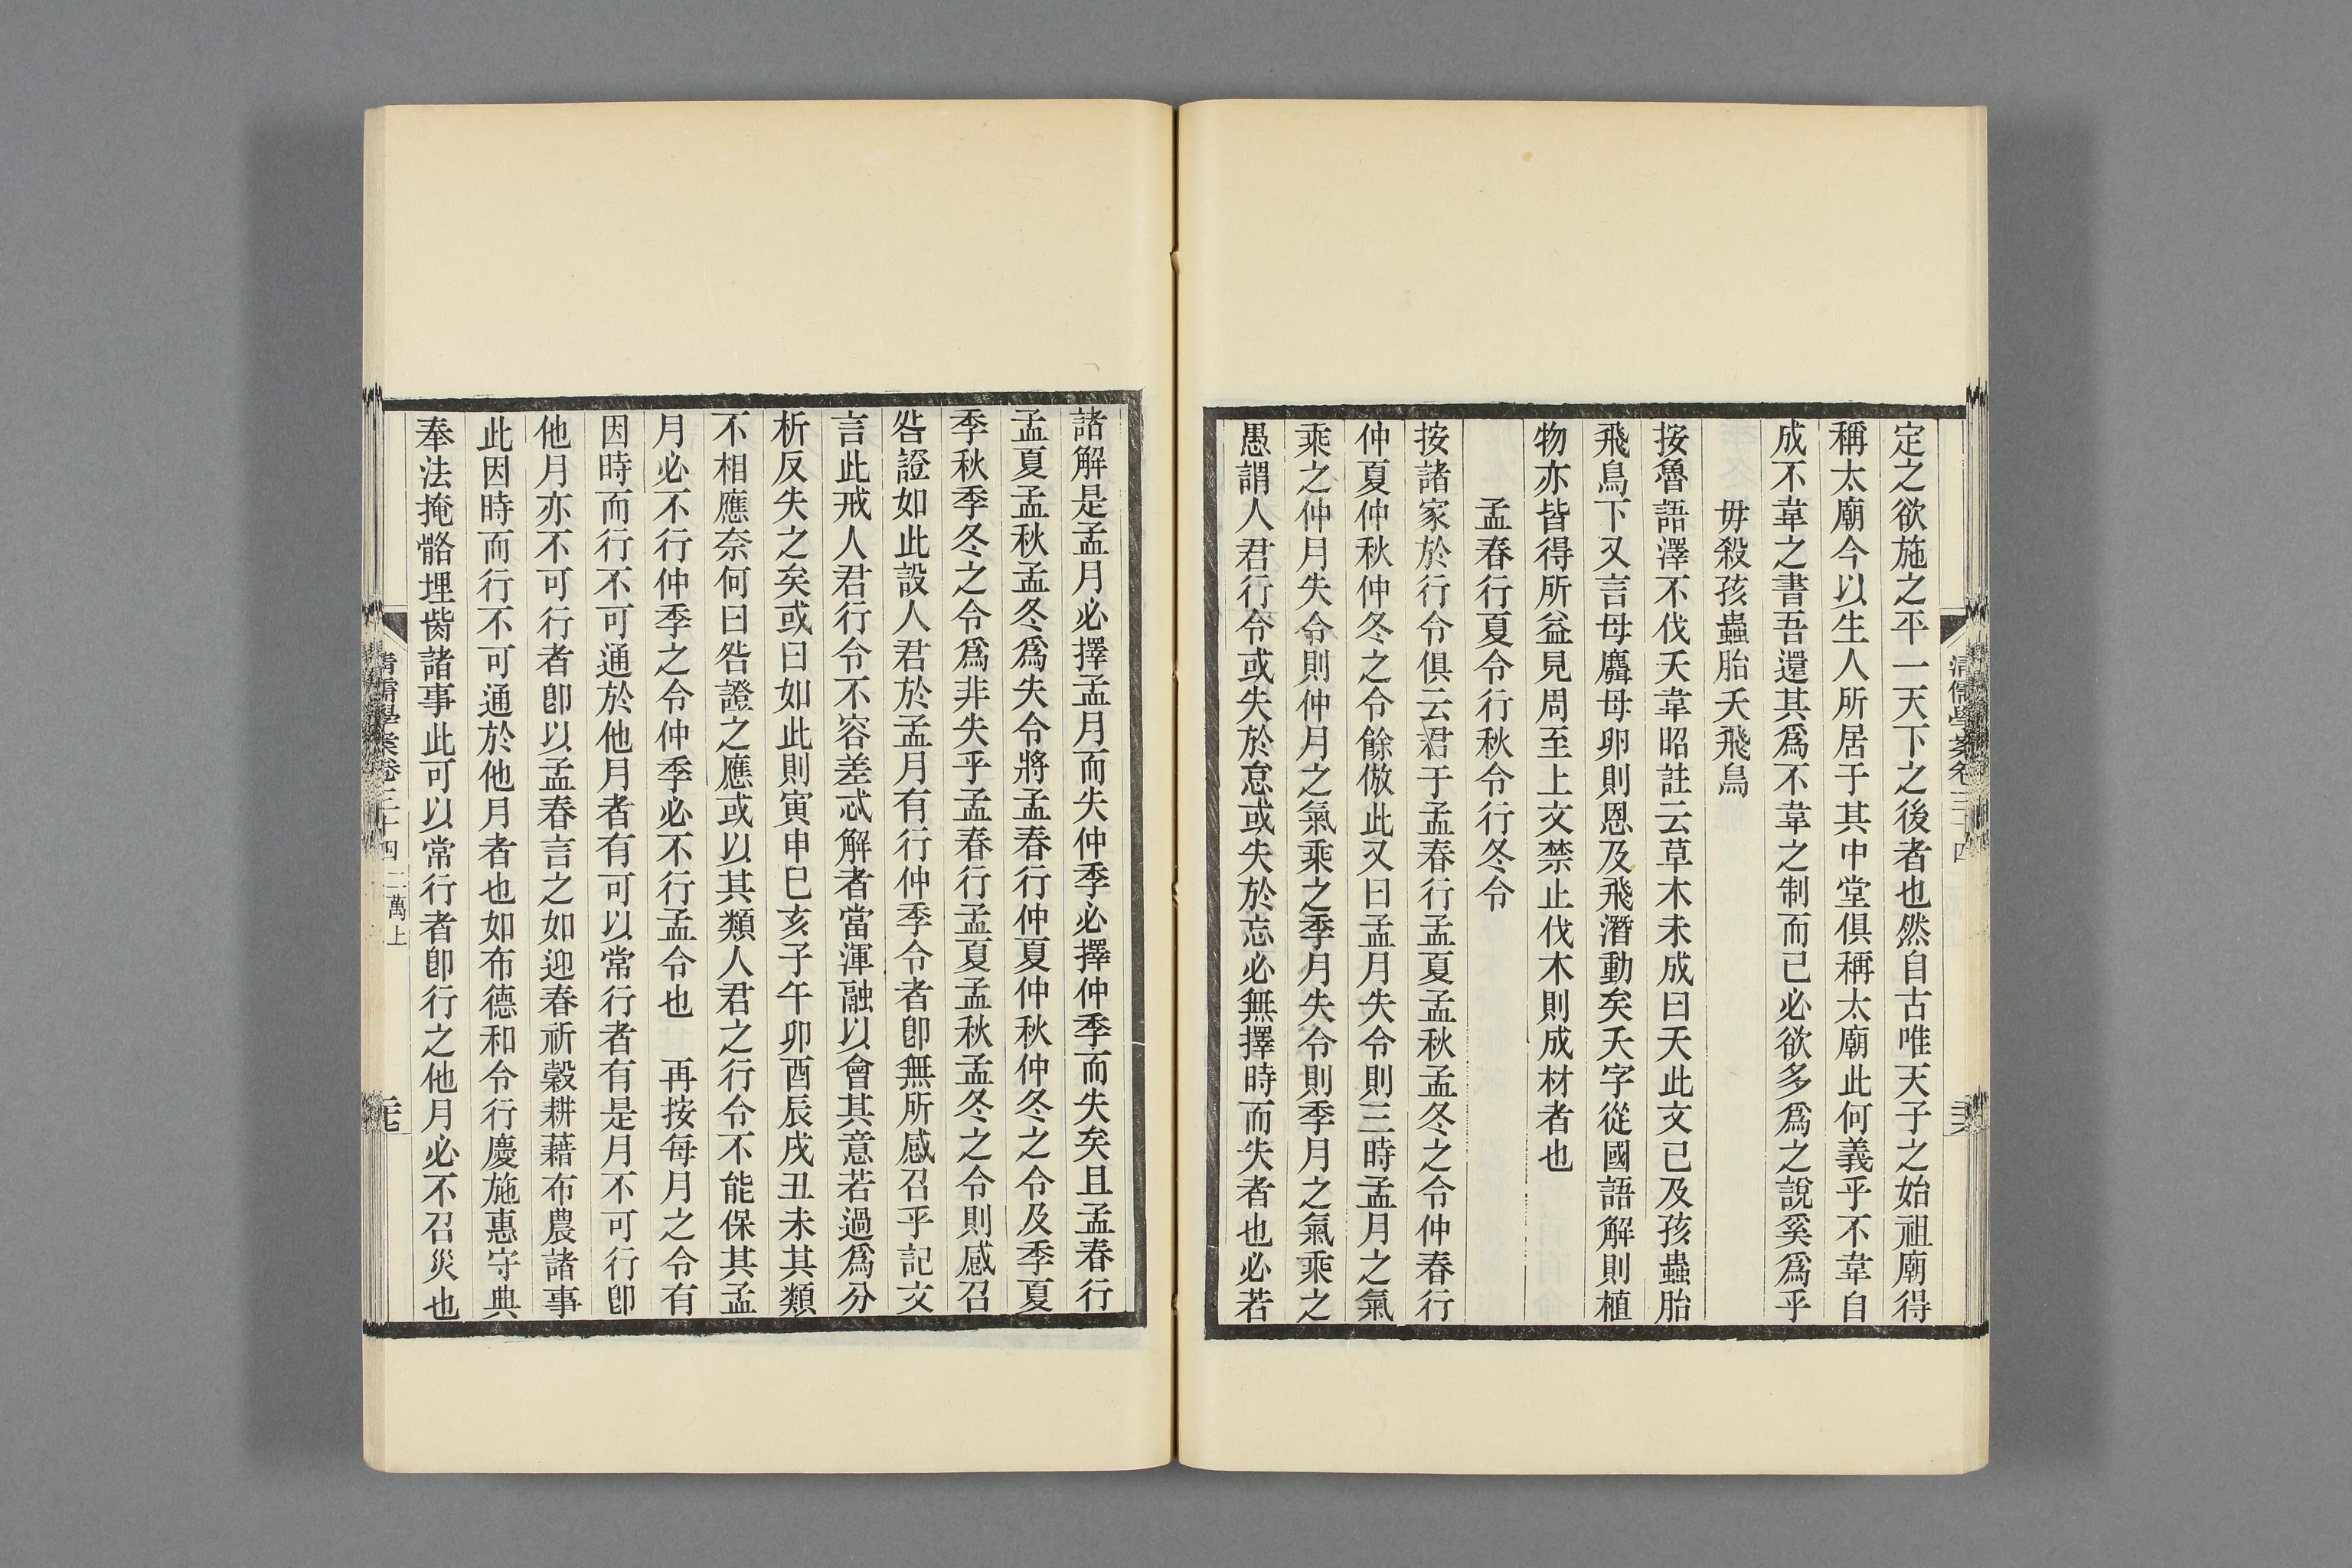 清儒學案卷三十四
定之欲施之平一天下之後者也然自古唯天子之始祖廟得
稱太廟今以生人所居于其中堂俱稱太廟此何義乎不韋自
成不韋之書吾還其爲不韋之制而已必欲多爲之說奚爲乎
毋殺孩蟲胎夭飛鳥
按魯語澤不伐夭韋昭註云草木未成曰夭此文已及孩蟲胎
飛鳥下又言毋麛毋卵則恩及飛潛動矣夭字從國語解則植
物亦皆得所益見周至上文禁止伐木則成材者也
孟春行夏令行秋令行冬令
按諸家於行令俱云君于孟春行孟夏孟秋孟冬之令仲春行
仲夏仲秋仲冬之令餘倣此又曰孟月失令則三時孟月之氣
乘之仲月失令則仲月之氣乘之季月失令則季月之氣乘之
愚謂人君行令或失於怠或失於忘必無擇時而失者也必若
諸解是孟月必擇孟月而失仲季必擇仲季而失矣且孟春行
孟夏孟秋孟冬爲失令將孟春行仲夏仲秋仲冬之令及季夏
季秋季冬之令爲非失乎孟春行孟夏孟秋孟冬之令則感召
咎證如此設人君於孟月有行仲季令者卽無所感召乎記文
言此戒人君行令不容差忒解者當渾融以會其意若過爲分
析反失之矣或曰如此則寅申巳亥子午卯酉辰戌丑未其類
不相應奈何曰咎證之應或以其類人君之行令不能保其孟
月必不行仲季之令仲季必不行孟令也　再按每月之令有
因時而行不可通於他月者有可以常行者有是月不可行卽
他月亦不可行者卽以孟春言之如迎春祈穀耕藉布農諸事
此因時而行不可通於他月者也如布德和令行慶施惠守典
奉法掩骼埋胔諸事此可以常行者卽行之他月必不召災也
清儒學案卷三十四 二萬上